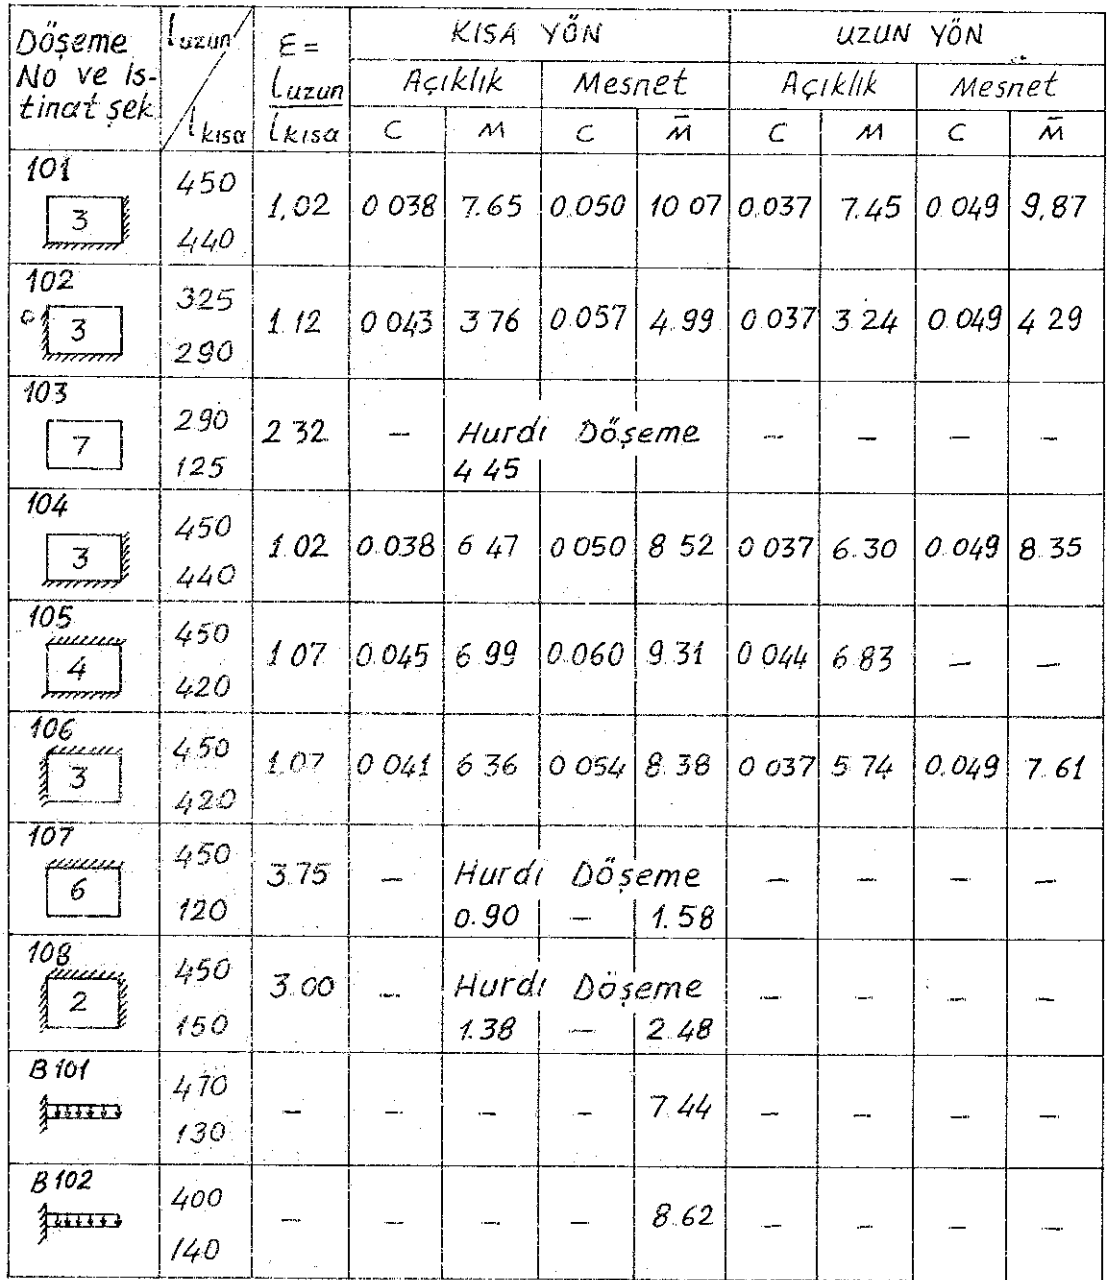 Döşeme No ve is-tinat şek. | l uzun / l kısa | ε = l uzun / l kısa | KISA YÖN | UZUN YÖN
Açıklık | Mesnet | Açıklık | Mesnet
C | M | C | M̄ | C | M | C | M̄
101
3 | 450 / 440 | 1,02 | 0 038 | 7.65 | 0.050 | 10 07 | 0.037 | 7.45 | 0.049 | 9,87
102
3 | 325 / 290 | 1.12 | 0 043 | 3 76 | 0.057 | 4.99 | 0.037 | 3 24 | 0.049 | 4 29
103
7 | 290 / 125 | 2 32 | – | Hurdi Döşeme | – | – | – | –
4 45
104
3 | 450 / 440 | 1.02 | 0.038 | 6 47 | 0 050 | 8 52 | 0 037 | 6.30 | 0.049 | 8.35
105
4 | 450 / 420 | 1 07 | 0.045 | 6 99 | 0.060 | 9.31 | 0 044 | 6 83 | – | –
106
3 | 450 / 420 | 1.07 | 0 041 | 6 36 | 0 054 | 8.38 | 0 037 | 5 74 | 0.049 | 7.61
107
6 | 450 / 120 | 3.75 | – | Hurdi Döşeme | – | – | – | –
0.90 | – | 1.58
108
2 | 450 / 150 | 3.00 | – | Hurdi Döşeme | – | – | – | –
1.38 | – | 2 48
B 101
470 / 130 | – | – | – | – | 7.44 | – | – | – | –
B 102
400 / 140 | – | – | – | – | 8.62 | – | – | – | –